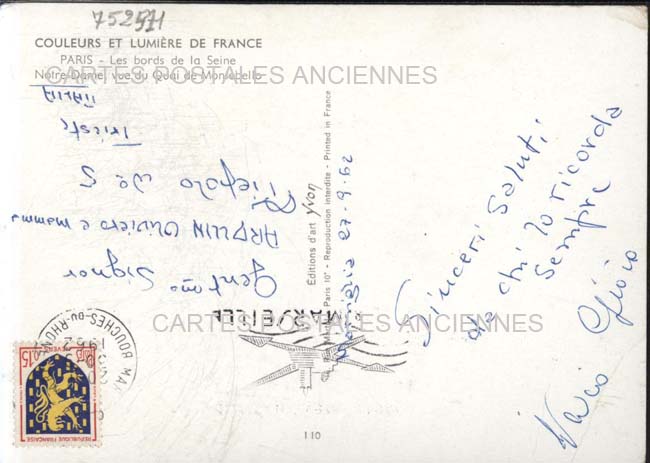 75251
COULEURS ET LUMIÈRE DE FRANCE
PARIS - Les bords de la Seine
Notre-Dame, vue du Quai de Montebello
CARTES POSTALES ANCIENNES
Sinceri Saluti
da chi lo ricorda
sempre
27.9.62
Gent.mo Signor
ARDUIN Oliviero e mamma
Tiepolo No 5
Trieste
ITALIA
Editions d'art yvon
Paris 10e - Reproduction interdite - Printed in France
MARSEILLE
BOUCHES-DU-RHONE
1962
0,15
NEVERS
REPUBLIQUE FRANÇAISE
CARTES POSTALES ANCIENNES
110